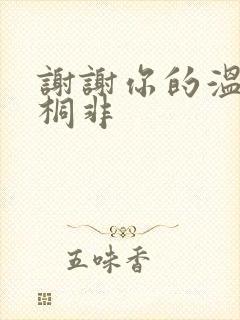 謝謝你的溫
桐非
五味香